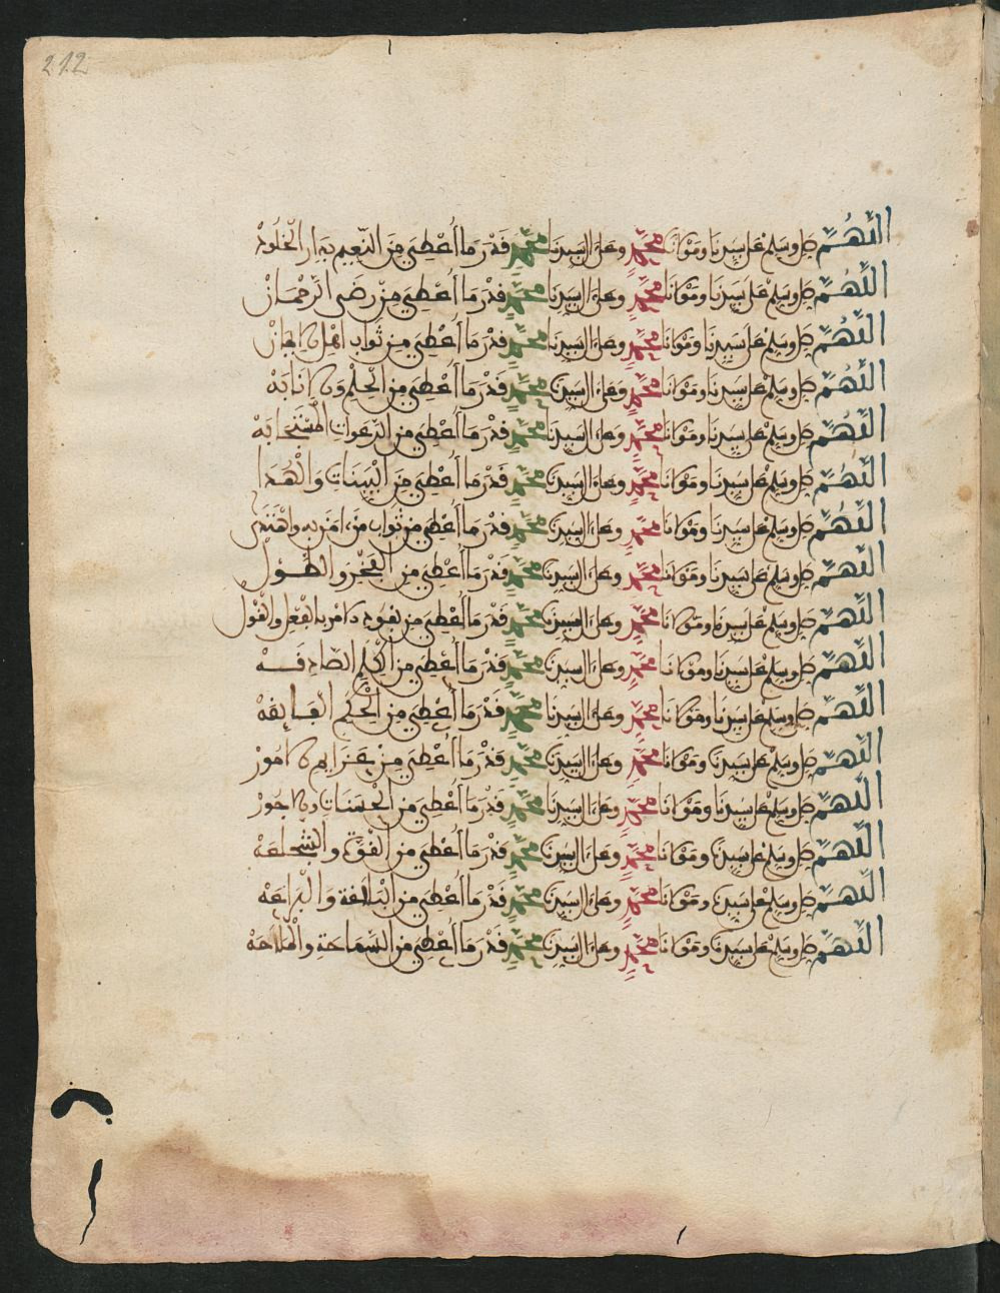 212
اللَّهُمَّ صل وسلم على سيدنا ومولانا محمد وعلى ال سيدنا محمد قدر ما أعطي من النعيم بدار الخلود
اللَّهُمَّ صل وسلم على سيدنا ومولانا محمد وعلى ال سيدنا محمد قدر ما أعطي من رضى الرحمان
اللَّهُمَّ صل وسلم على سيدنا ومولانا محمد وعلى ال سيدنا محمد قدر ما أعطي من ثواب اهل
اللَّهُمَّ صل وسلم على سيدنا ومولانا محمد وعلى ال سيدنا محمد قدر ما أعطي من الحلم والانابه
اللَّهُمَّ صل وسلم على سيدنا ومولانا محمد وعلى ال سيدنا محمد قدر ما أعطي من الدعوات المستجابه
اللَّهُمَّ صل وسلم على سيدنا ومولانا محمد وعلى ال سيدنا محمد قدر ما أعطي من البينات والهدا
اللَّهُمَّ صل وسلم على سيدنا ومولانا محمد وعلى ال سيدنا محمد قدر ما أعطي من ثواب من امن به واهتدى
اللَّهُمَّ صل وسلم على سيدنا ومولانا محمد وعلى ال سيدنا محمد قدر ما أعطي من الفخر والطول
اللَّهُمَّ صل وسلم على سيدنا ومولانا محمد وعلى ال سيدنا محمد قدر ما أعطي من نفوذ الامر بالفعل والقول
اللَّهُمَّ صل وسلم على سيدنا ومولانا محمد وعلى ال سيدنا محمد قدر ما أعطي من الكلم الصادقه
اللَّهُمَّ صل وسلم على سيدنا ومولانا محمد وعلى ال سيدنا محمد قدر ما أعطي من الحكم الفايقه
اللَّهُمَّ صل وسلم على سيدنا ومولانا محمد وعلى ال سيدنا محمد قدر ما أعطي من عزايم الامور
اللَّهُمَّ صل وسلم على سيدنا ومولانا محمد وعلى ال سيدنا محمد قدر ما أعطي من الحسنات والاجور
اللَّهُمَّ صل وسلم على سيدنا ومولانا محمد وعلى ال سيدنا محمد قدر ما أعطي من القوة والشجاعه
اللَّهُمَّ صل وسلم على سيدنا ومولانا محمد وعلى ال سيدنا محمد قدر ما أعطي من البلاغة والبراعه
اللَّهُمَّ صل وسلم على سيدنا ومولانا محمد وعلى ال سيدنا محمد قدر ما أعطي من السماحة والملاحه